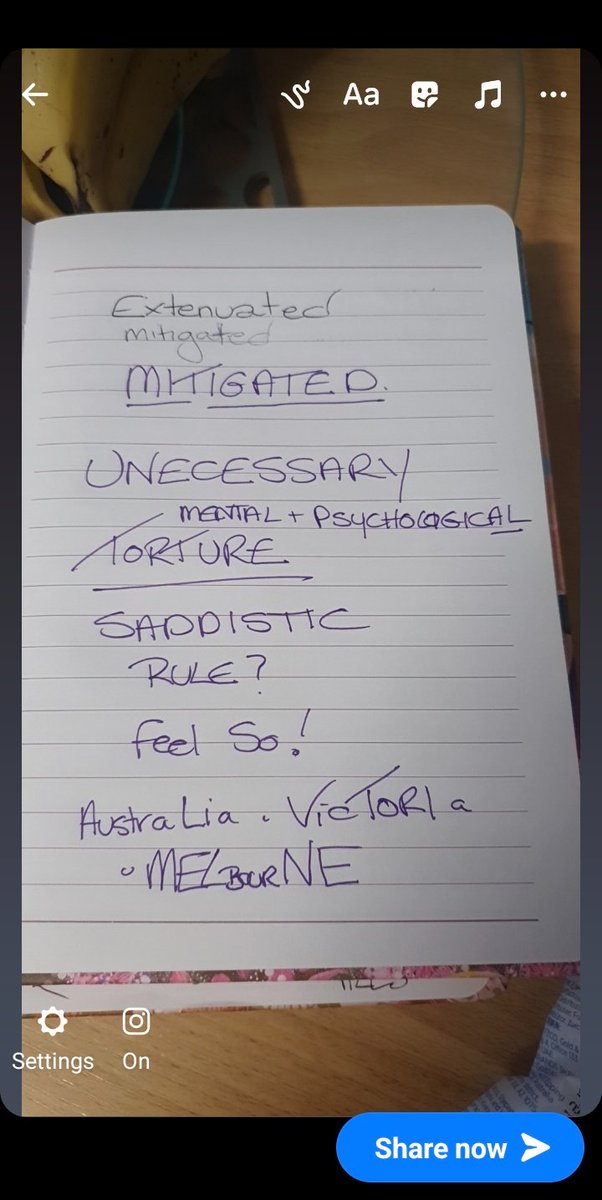 Aa
Extenuated
mitigated
MITIGATED.
UNECESSARY
MENTAL + PSYCHOLOGICAL
TORTURE
SADDISTIC
RULE?
feel So!
AustraLia . VicTORIa
MELBourNE
Settings On
Share now